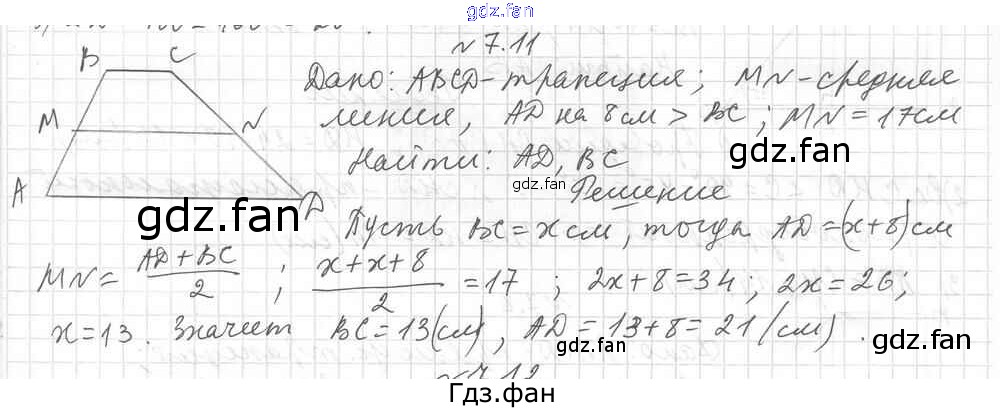 gdz.fan
N 7.11
B C
Дано: ABCD-трапеция; MN-средняя
M N
линия, AD на 8см > BC; MN=17см
gdz.fan
Найти: AD, BC
gdz.fan
A D
Решение
gdz.fan
gdz.fan
Пусть BC=x см, тогда AD=(x+8)см
MN= AD+BC / 2 ; x+x+8 / 2 =17 ; 2x+8=34; 2x=26;
x=13. Значет BC=13(см), AD=13+8=21(см).
gdz.fan
gdz.fan
gdz.fan
N 7.12
Гдз.фан